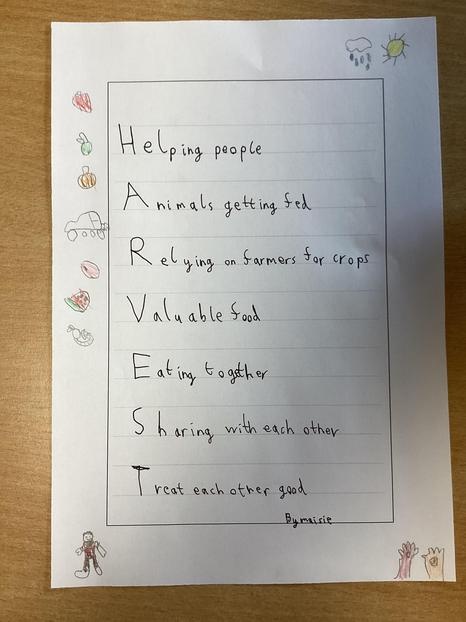 Helping people
Animals getting fed
Relying on farmers for crops
Valuable food
Eating together
Sharing with each other
Treat each other good
By maisie